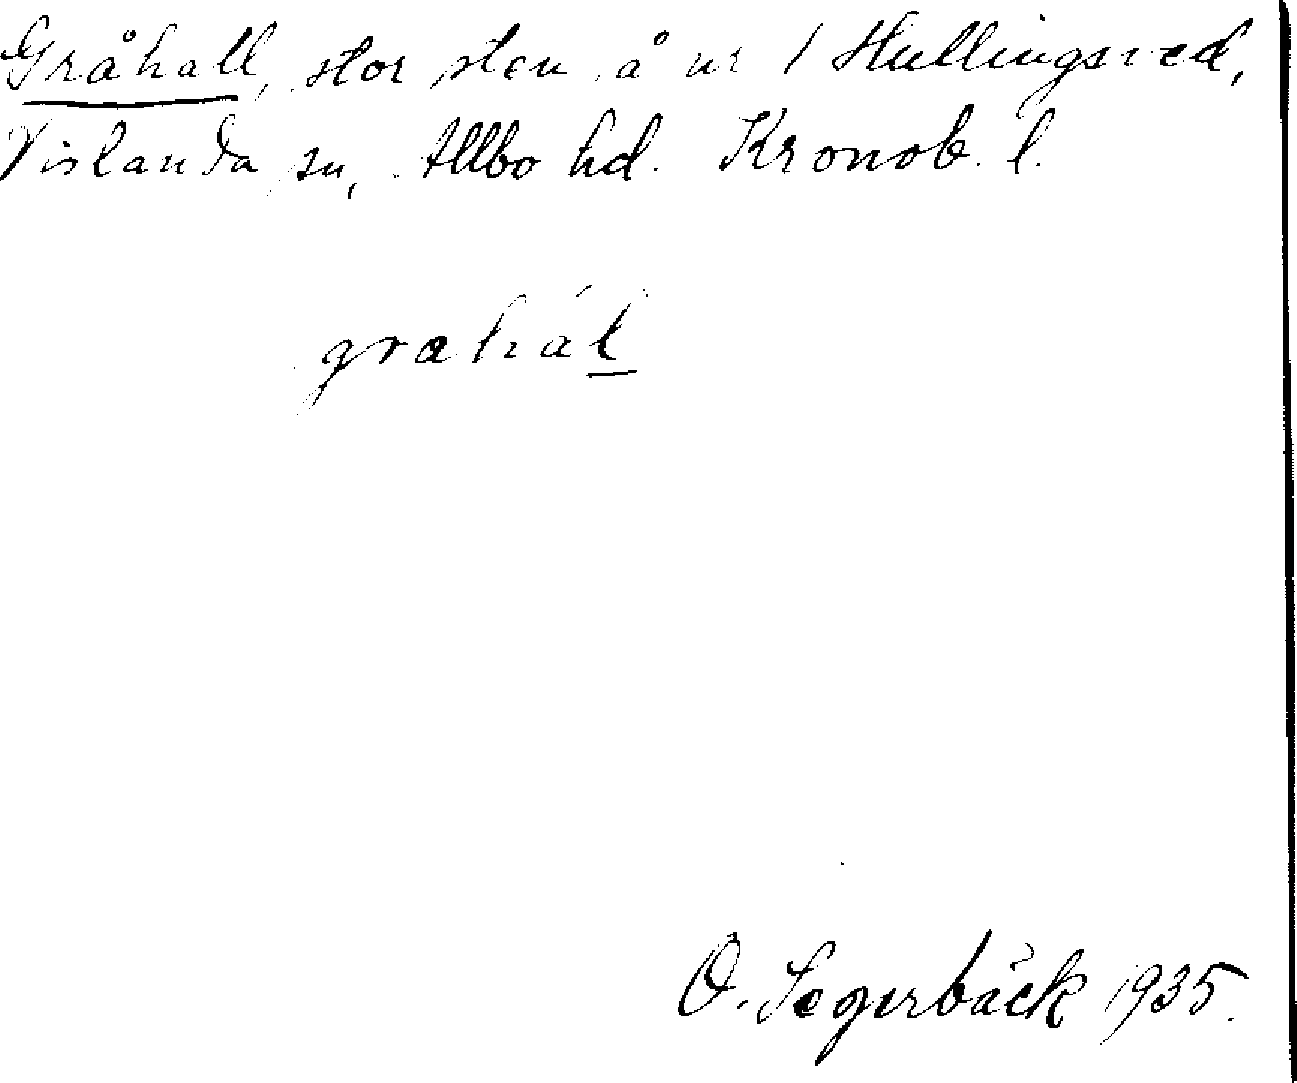 Gråhall, stor sten å nr 1 Hullingsved,
Vislanda sn, Allbo hd. Kronob. l.
grahál
O. Segerbäck 1935.